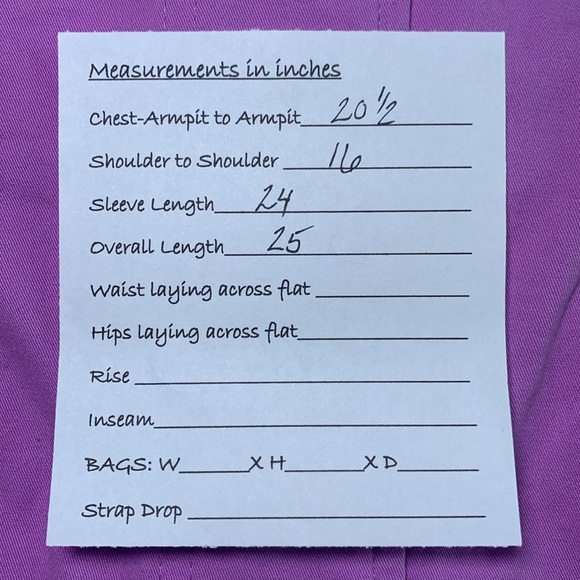 Measurements in inches
Chest-Armpit to Armpit 20 1/2
Shoulder to Shoulder 16
Sleeve Length 24
Overall Length 25
Waist laying across flat
Hips laying across flat
Rise
Inseam
BAGS: W X H X D
Strap Drop